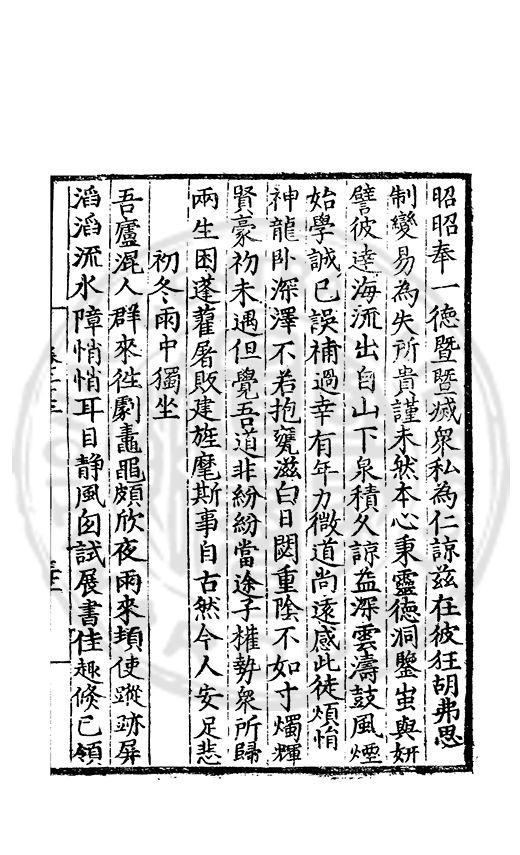 昭昭奉一德暨暨滅衆私為仁諒兹在彼狂胡弗思
制變易為失所貴謹未然本心秉靈德洞鑒蚩與妍
譬彼達海流出自山下泉積久諒益深雲濤鼓風煙
始學誠已誤補過幸有年力微道尚遠感此徒煩悁
神龍卧深澤不若抱甕滋白日閟重陰不如寸燭輝
賢豪初未遇但覺吾道非紛紛當途子擁勢衆所歸
兩生困蓬藋屠販建旌麾斯事自古然今人安足悲
初冬雨中獨坐
吾廬混人群來徃劇鼃黽頗欣夜雨來頓使蹤跡屏
滔滔流水障悄悄耳目静風囱試展書佳趣倏已領